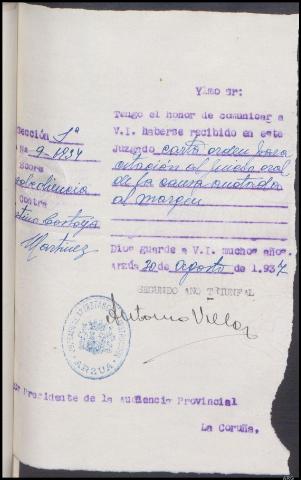 Ylmo Sr:
Tengo el honor de comunicar a
V.I. haberse recibido en este
Juzgado carta orden para
citación al juicio oral
de la causa anotada
al margen
Dios guarde a V.I. muchos años.
Arzúa 20 de agosto de 1.937
SEGUNDO AÑO TRIUNFAL
Antonio Villar
Sección 1ª
Nº 9-1934
Sobre
desobediencia
Contra
Martínez
ARZUA
Presidente de la Audiencia Provincial
La Coruña.